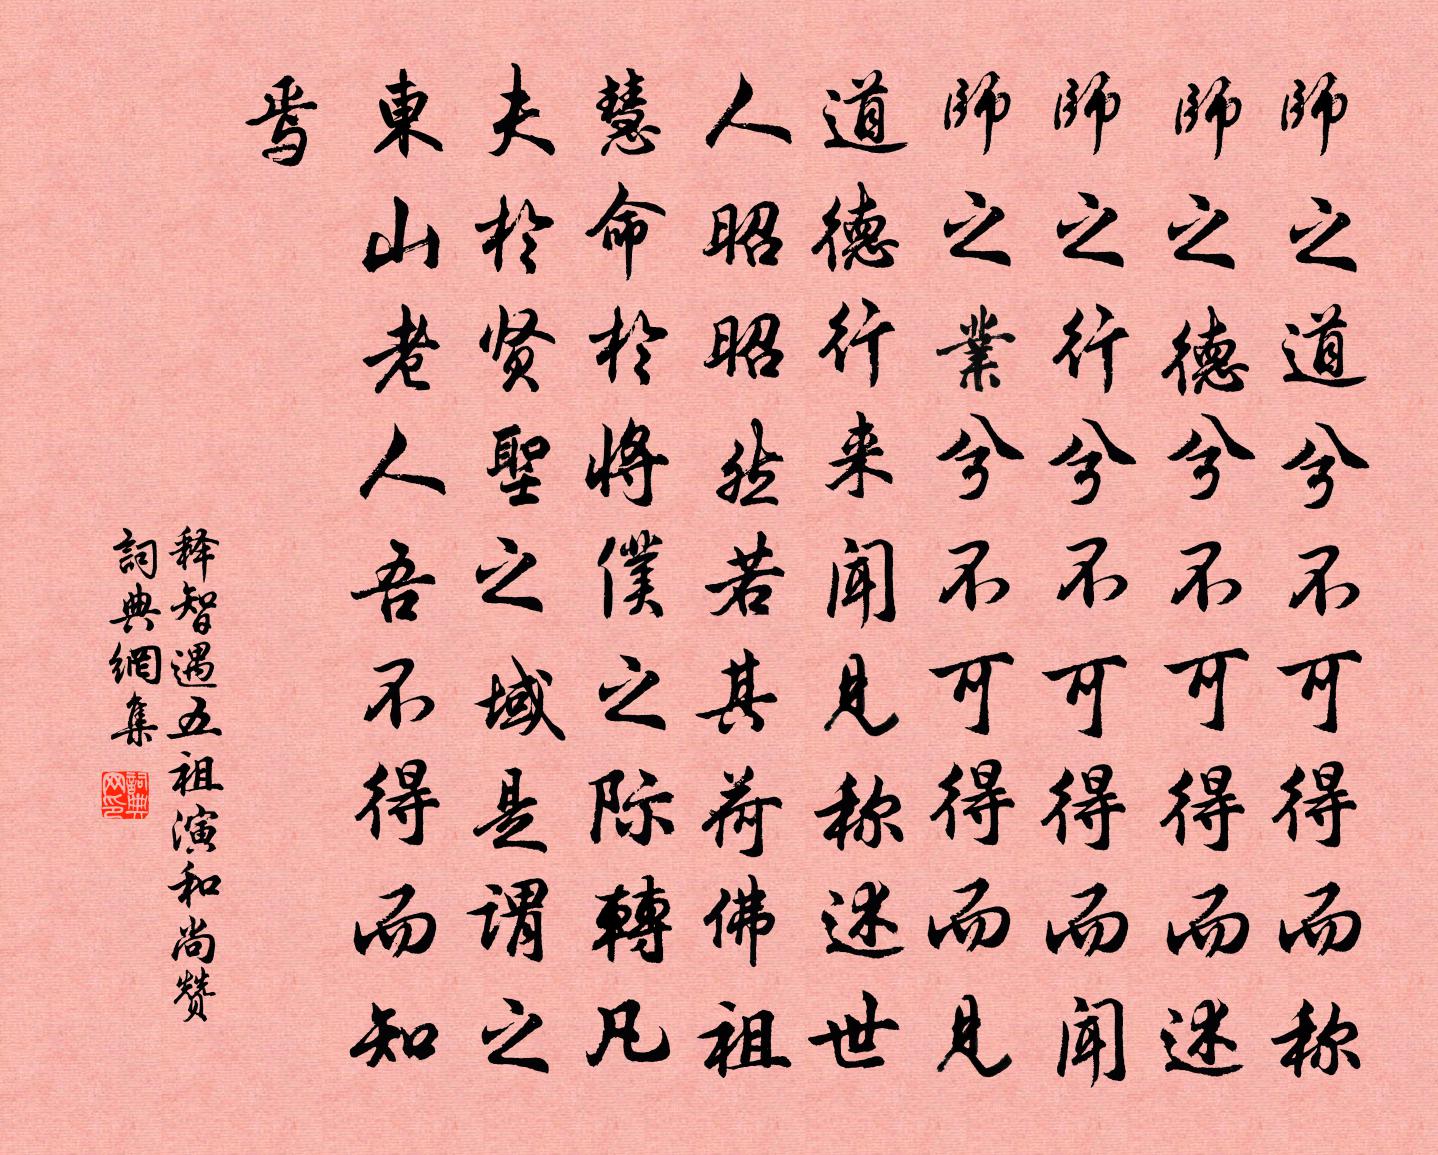 師之道兮不可得而称
師之德兮不可得而述
師之行兮不可得而闻
師之業兮不可得而見
道德行来闻見称述世
人昭昭然若其荷佛祖
慧命於將僕之际轉凡
夫於贤聖之域是谓之
東山老人吾不得而知
焉
释智遇五祖演和尚赞
詞典網集
詞典網印